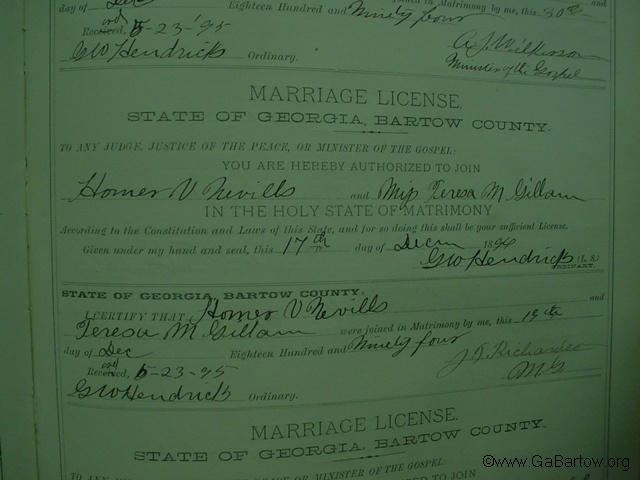 joined in Matrimony by me, this 30th
day of Dec Eighteen Hundred and Ninety four
Received, 5-23-'95 A. J. Wilkerson
GW Hendricks Ordinary. Minister of the Gospel
MARRIAGE LICENSE.
STATE OF GEORGIA, BARTOW COUNTY.
TO ANY JUDGE, JUSTICE OF THE PEACE, OR MINISTER OF THE GOSPEL:
YOU ARE HEREBY AUTHORIZED TO JOIN
Homer V Nevills and Miss Teresa M. Gillam
IN THE HOLY STATE OF MATRIMONY
According to the Constitution and Laws of this State, and for so doing this shall be your sufficient License.
Given under my hand and seal, this 17th day of Decm 1894
GW Hendricks (L.S.)
ORDINARY.
STATE OF GEORGIA, BARTOW COUNTY.
I CERTIFY THAT Homer V Nevills and
Teresa M Gillam were joined in Matrimony by me, this 19th
day of Dec Eighteen Hundred and Ninety four
Received, 5-23-95 Richardson
GW Hendricks Ordinary. M.G
MARRIAGE LICENSE.
STATE OF GEORGIA, BARTOW COUNTY.
TO ANY JUSTICE OF THE PEACE OR MINISTER OF THE GOSPEL:
AUTHORIZED TO JOIN
©www.GaBartow.org